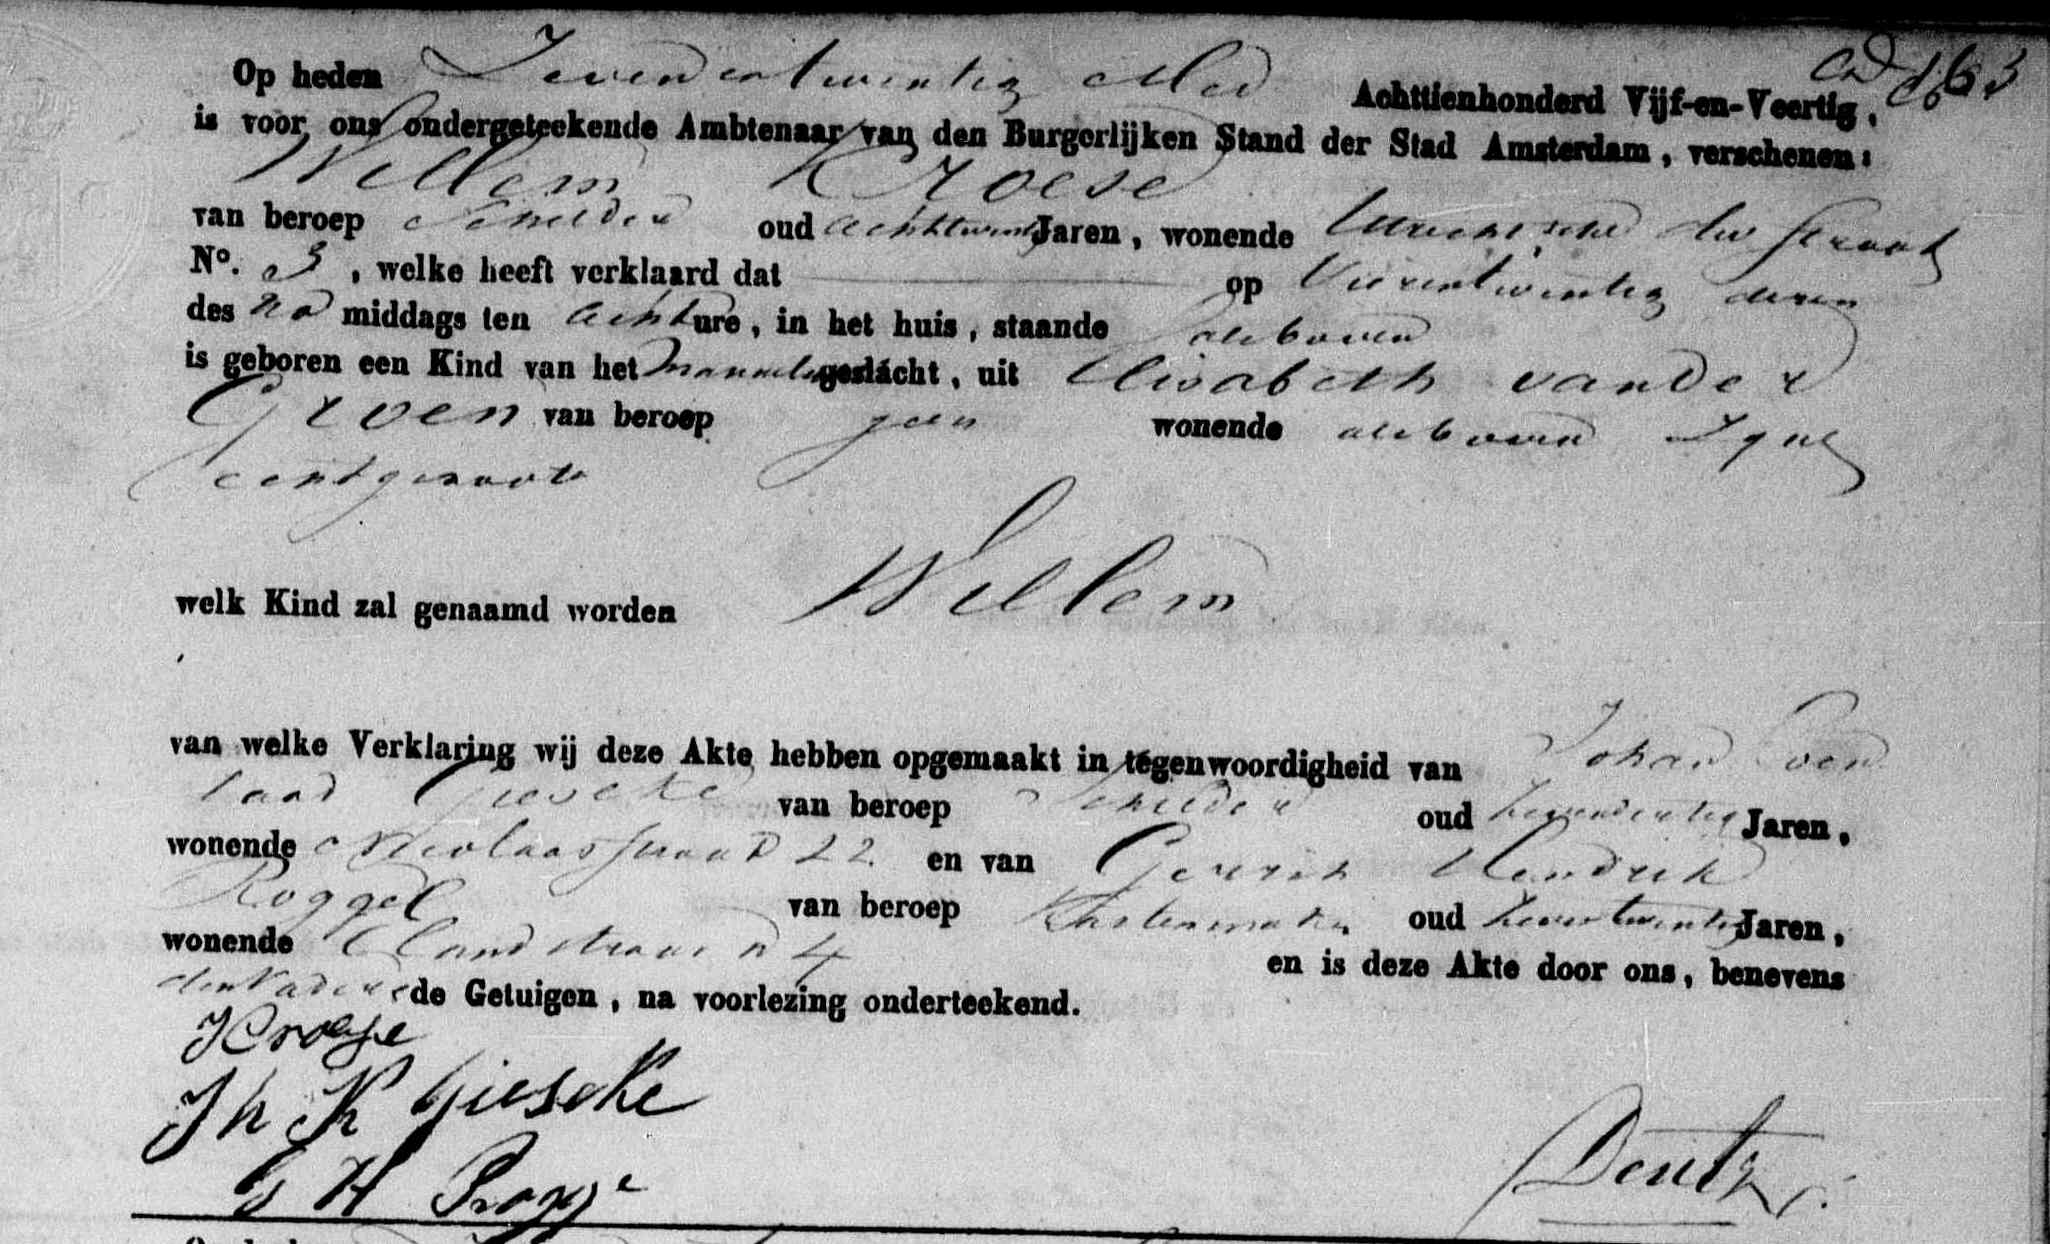 Op heden Zevenentwintig Mei Achttienhonderd Vijf-en-Veertig, 163
is voor ons ondergeteekende Ambtenaar van den Burgerlijken Stand der Stad Amsterdam, verschenen:
Willem Kroese
van beroep Schilder oud achttwintig Jaren, wonende Utrechtsche dw straat
No. 3, welke heeft verklaard dat op Vierentwintig dezer
des na middags ten acht ure, in het huis, staande als boven
is geboren een Kind van het mannelijk geslacht, uit Elisabeth van der
Groen van beroep geen wonende als boven Zyne
echtgenoote
welk Kind zal genaamd worden Willem
van welke Verklaring wij deze Akte hebben opgemaakt in tegenwoordigheid van Johan Coen
raad Gieseke van beroep Schilder oud Jaren,
wonende Nicolaasstraat 22 en van Gerrit Hendrik
Roggel van beroep Kastenmaker oud Zevenentwintig Jaren,
wonende Elandstraat n 4 en is deze Akte door ons, benevens
den Vader en de Getuigen, na voorlezing onderteekend.
Kroese
Jh K Gieseke
G H Rogge
Deutz